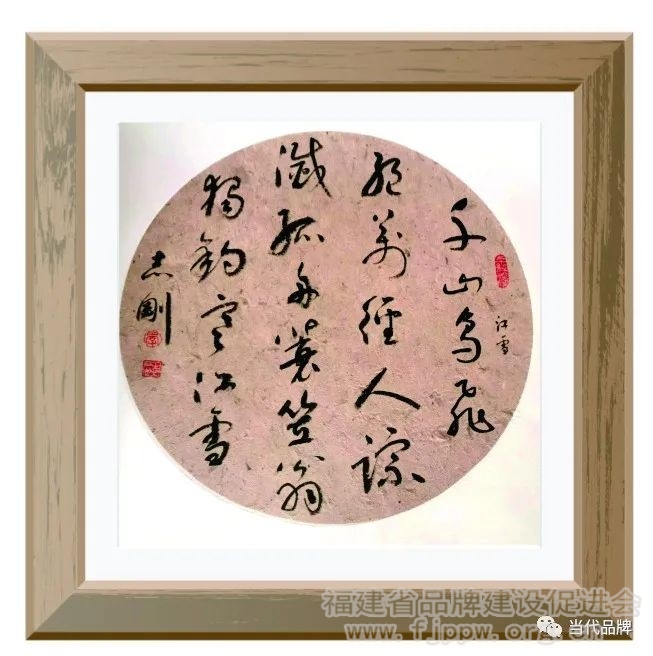 江雪
千山鳥飛
絕萬徑人踪
滅孤舟蓑笠翁
獨釣寒江雪
志剛
福建省品牌建设促进会
www.fjppw.org
当代品牌